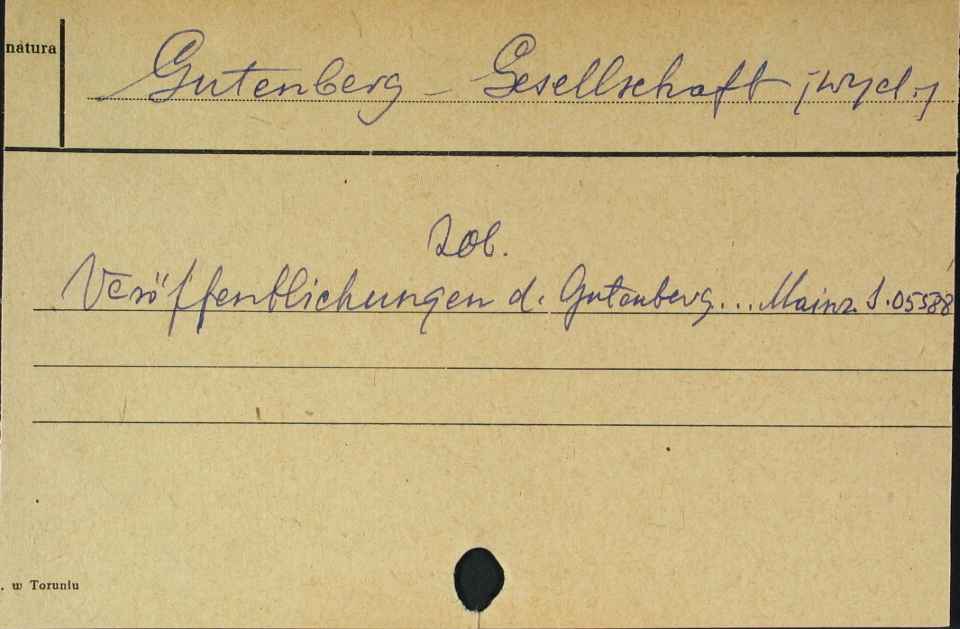 natura
Gutenberg - Gesellschaft (wyd.)
zob.
Veröffentlichungen d. Gutenberg... Mainz. S.05588
. w Toruniu